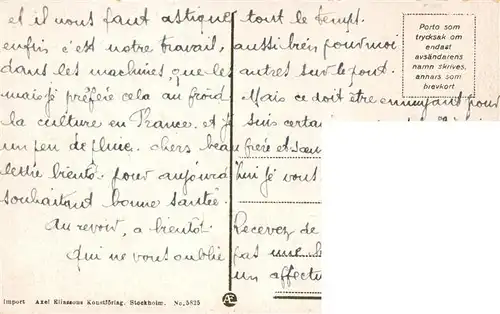 et il vous faut astiquer tout le temps.
enfin c'est notre travail, aussi bien pour moi
dans les machines que les autres sur le pont.
mais je préfère cela au froid. Mais ce doit être ennuyant pour
la culture en France. et je suis certa
un peu de pluie. chers beau frère et soeu
lettre bientôt. pour aujourd'hui je vous
souhaitant bonne santée.
Au revoir, a bientôt.
Qui ne vous oublie
Recevez de
pas une
un affectu
Porto som
trycksak om
endast
avsändarens
namn skrives,
annars som
brevkort
Import Axel Eliassons Konstförlag. Stockholm. No, 5825
AE